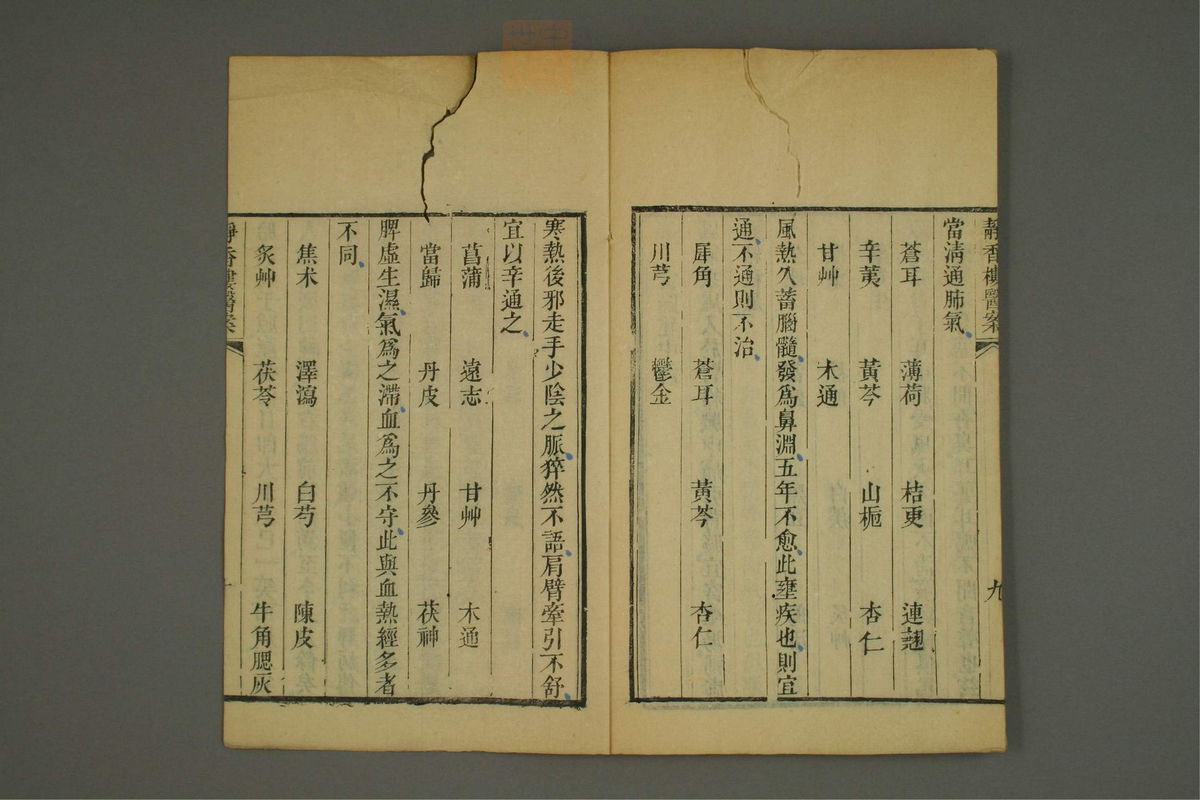 靜香樓醫案
九
當淸通肺氣
蒼耳 薄荷 桔更 連翹
辛荑 黃芩 山梔 杏仁
甘艸 木通
風熱久蓄腦髓發爲鼻淵五年不愈此壅疾也則宜
通不通則不治
犀角 蒼耳 黃芩 杏仁
川芎 鬱金
寒熱後邪走手少陰之脈猝然不語肩臂牽引不舒
宜以辛通之
菖蒲 遠志 甘艸 木通
當歸 丹皮 丹參 茯神
脾虛生濕氣爲之滯血爲之不守此與血熱經多者
不同
焦术 澤瀉 白芍 陳皮
炙艸 茯苓 川芎 牛角腮灰
靜香樓醫案